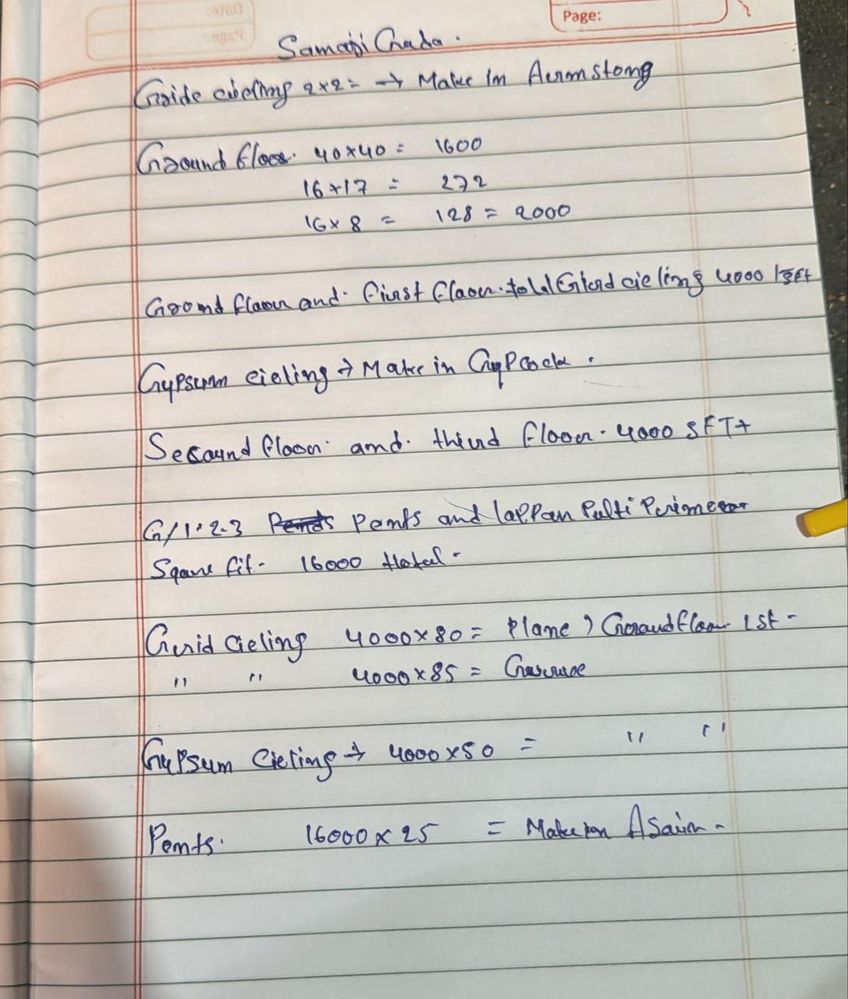 Page:
Samaji Chada.
Gride cieling 2x2= → Make im Aermstong
Ground floor. 40x40 = 1600
16+17 = 272
16x8 = 128 = 2000
Groond floor and. first floor. total Gierd cieling 4000
Gypsum cieling → Make in GypCock.
Secound floor. and. thierd floor. 4000 SFT+
G/1.2.3 Pents and lappan Pulti Primeter
Sqaure fit- 16000 +totel-
Gerid cieling 4000x80 = Plane) Groundfloor 1st -
" " 4000x85 =
Gypsum Cieling → 4000x50 = " "
Pents. 16000x25 = Make in Asain-